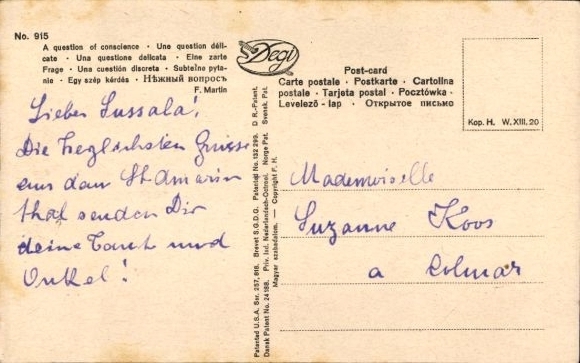 No. 915
A question of conscience · Une question déli-
cate · Una questione delicata · Eine zarte
Frage · Una cuestión discreta · Subtelne pyta-
nie · Egy szép kérdés · Нѣжный вопросъ
F. Martin
Degi
Post-card
Carte postale · Postkarte · Cartolina
postale · Tarjeta postal · Pocztówka ·
Levelező - lap · Открытое письмо
Kop. H. W. XIII. 20
D. R.-Patent.
Patented U.S.A. Ser. 257, 818. Brevet S.G.D.G. Patentiaj No. 132 299. Svensk Pat.
Dansk Patent No. 24 188. Priv. ind. Nederlandsch-Octrooi. Norge Pat.
Magyar szabadalom. — Copyright F. H.
Lieber Sussala!
Die herzlichsten Grüsse
aus dem St Amarin
thal senden Dir
deine Tante und
Onkel!
Mademoiselle
Suzanne Koos
a Colmar